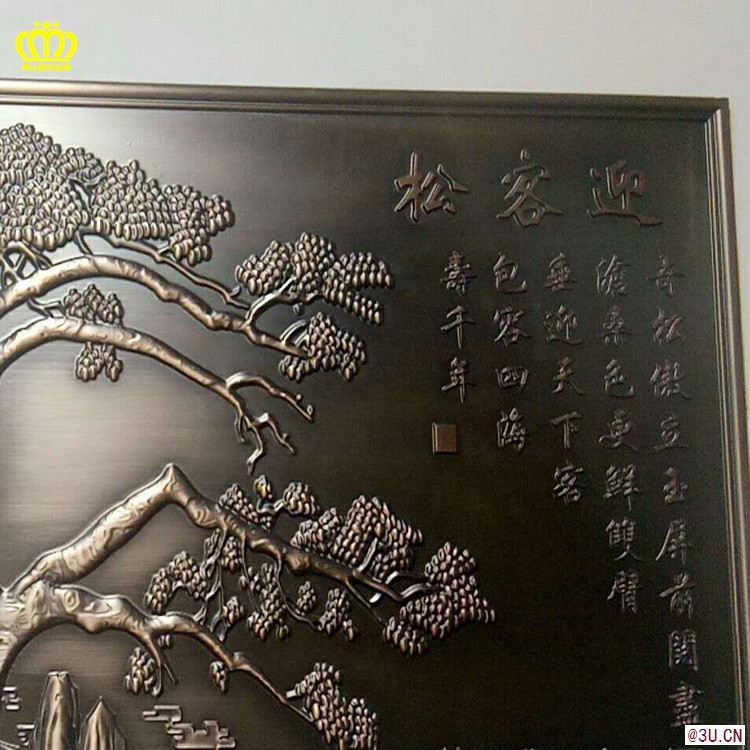 迎客松
奇松傲立玉屏前閱盡
滄桑色更鮮雙臂
垂迎天下客
包容四海
壽千年
@3U.CN